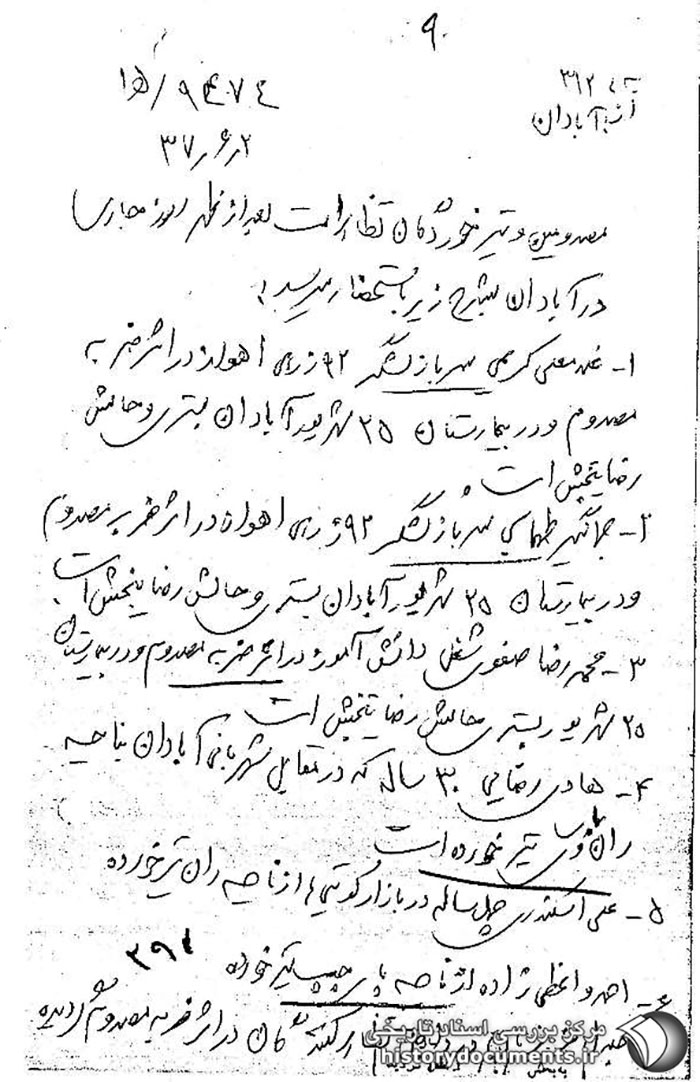 ۹
به ۳۶۲
از آبادان
۹۴۷۴ /ه‍ ۱۰
۳۷٫۶٫۲
مصدومین و تیر خوردگان تظاهرات بعد از ظهر امروز جاری
در آبادان بشرح زیر باستحضار میرسد:
۱- غلامعلی کریمی سرباز لشگر ۹۲ زرهی اهواز در اثر ضربه
مصدوم و در بیمارستان ۲۵ شهریور آبادان بستری و حالش
رضایتبخش است
۲- جهانگیر طهماسبی سرباز لشگر ۹۲ زرهی اهواز در اثر ضربه مصدوم
و در بیمارستان ۲۵ شهریور آبادان بستری و حالش رضایتبخش است.
۳- محمد رضا صفوی شغل دانش آموز در اثر ضربه مصدوم و در بیمارستان
۲۵ شهریور بستری حالش رضایتبخش است
۴- هادی رضایی ۳۰ ساله که در مقابل شهربانی آبادان بناحیه
ران وی تیر خورده است
۵- علی اسکندری چهل ساله در بازار کویتی ها از ناحیه ران تیر خورده
۳۹۲
۶- احمد واعظی زاده از ناحیه پای چپ تیر خورده
در اثر ضربه مصدوم گردیده
مرکز بررسی اسناد تاریخی
historydocuments.ir